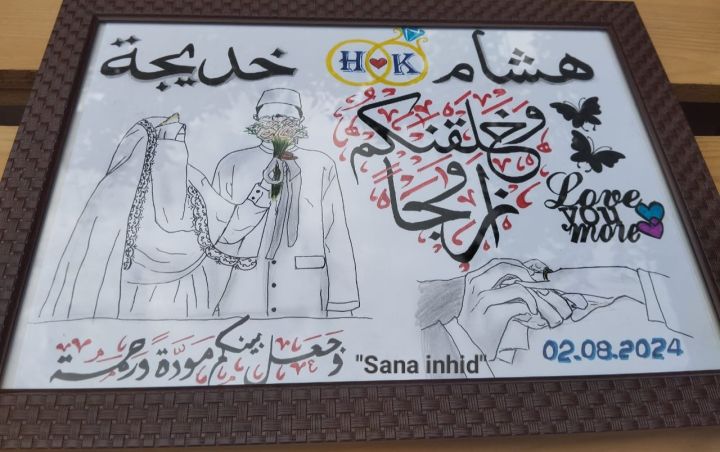 هشام
H K
خديجة
وخلقنكم
أزوجا
Love
you
more
وجعل بينكم مودة ورحمة
"Sana inhid"
02.08.2024